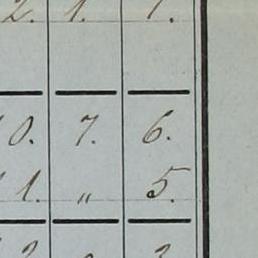 2. 1. 1.
0. 7. 6.
1. " 5.